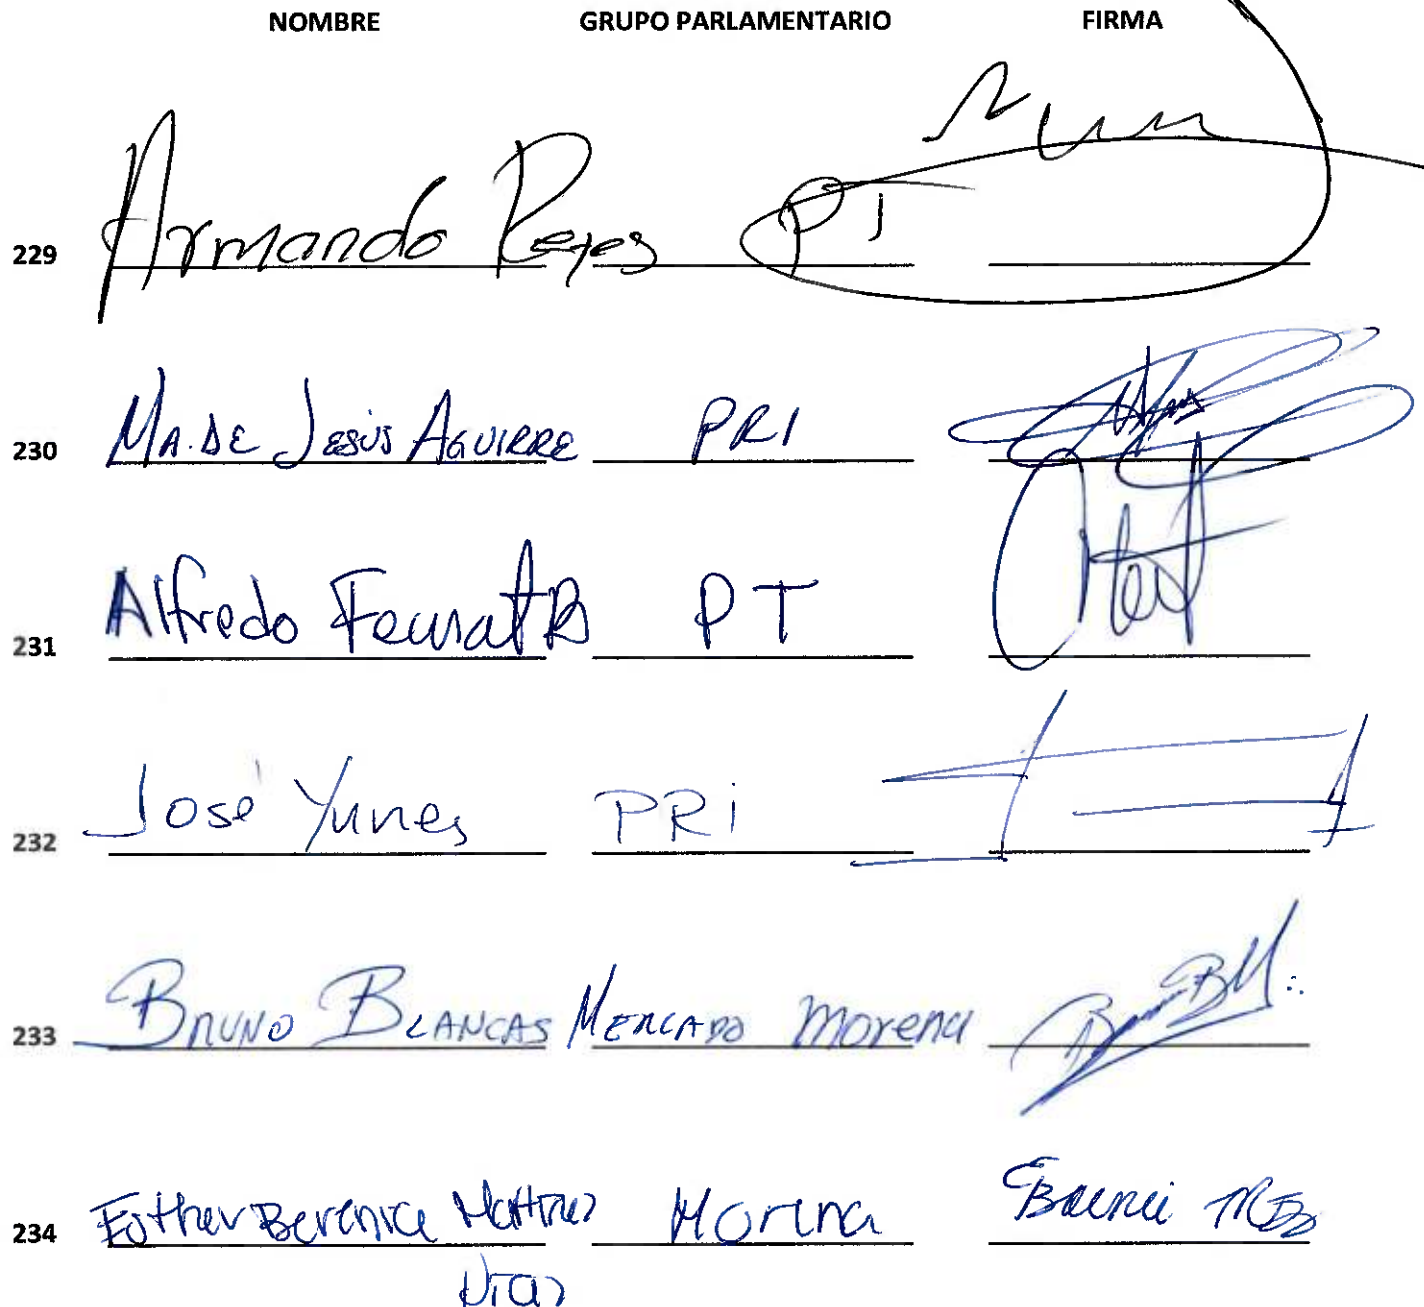 NOMBRE GRUPO PARLAMENTARIO FIRMA
229 Armando Reyes PT
230 MA. DE JESÚS AGUIRRE PRI
231 Alfredo Femat B PT
232 José Yunes PRi
233 BRUNO BLANCAS MERCADO morena
234 Esther Berenice Martinez Morena
Diaz